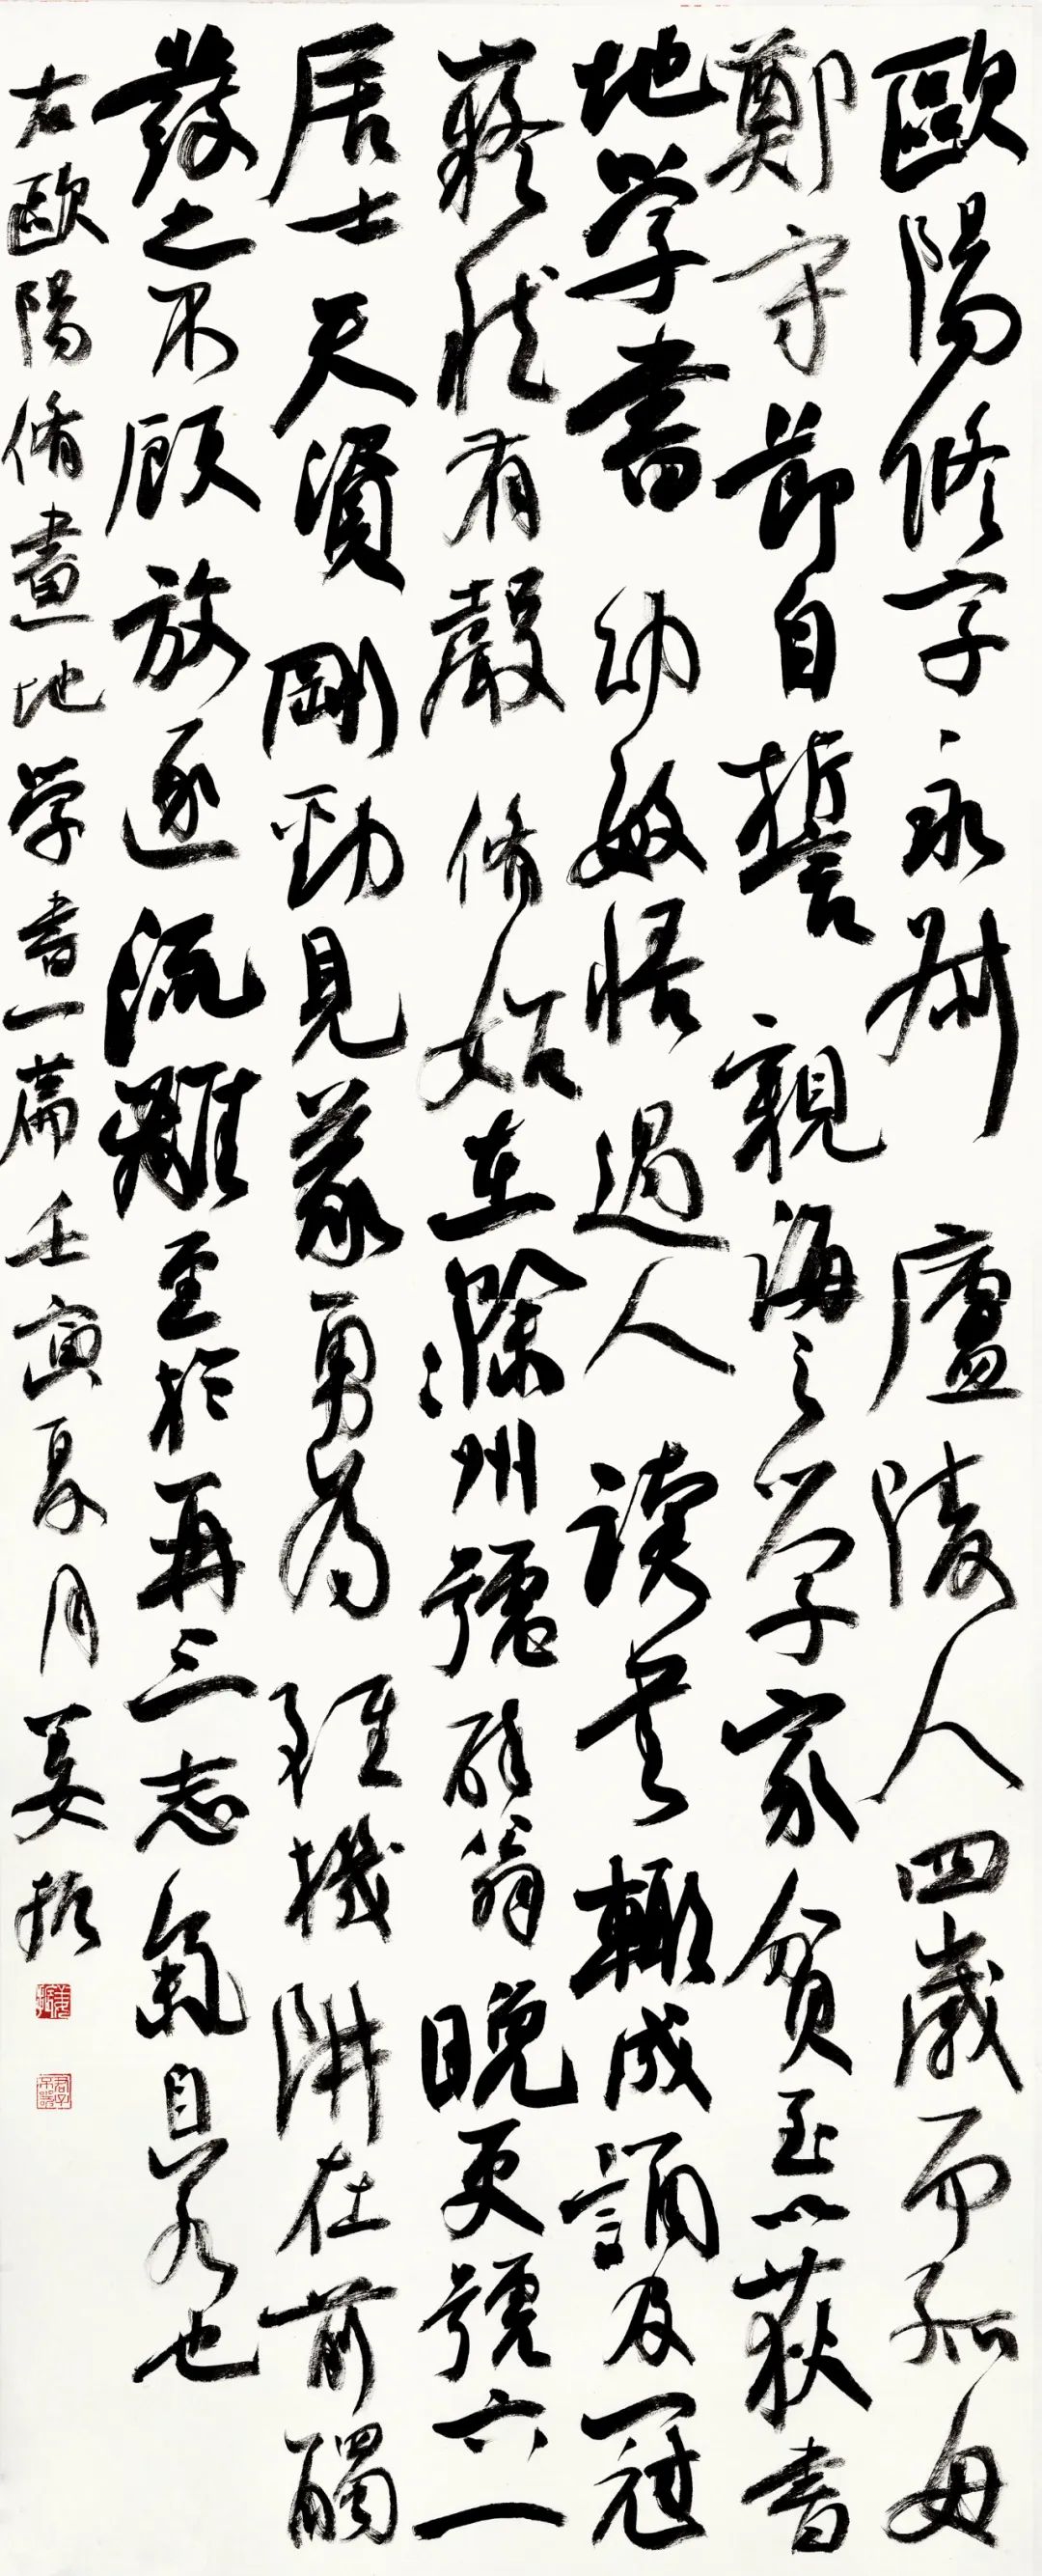 歐陽修字永叔廬陵人四歲而孤母
鄭守節自誓親誨之学家貧至以荻書
地学書幼敏悟過人讀書輒成誦及冠
嶷然有聲脩始在滁州號醉翁晚更號六一
居士天資剛勁見義勇為雖機阱在前觸
發之不顧放逐流離至於再三志氣自若也
右歐陽脩畫地学書一篇壬寅夏月姜振